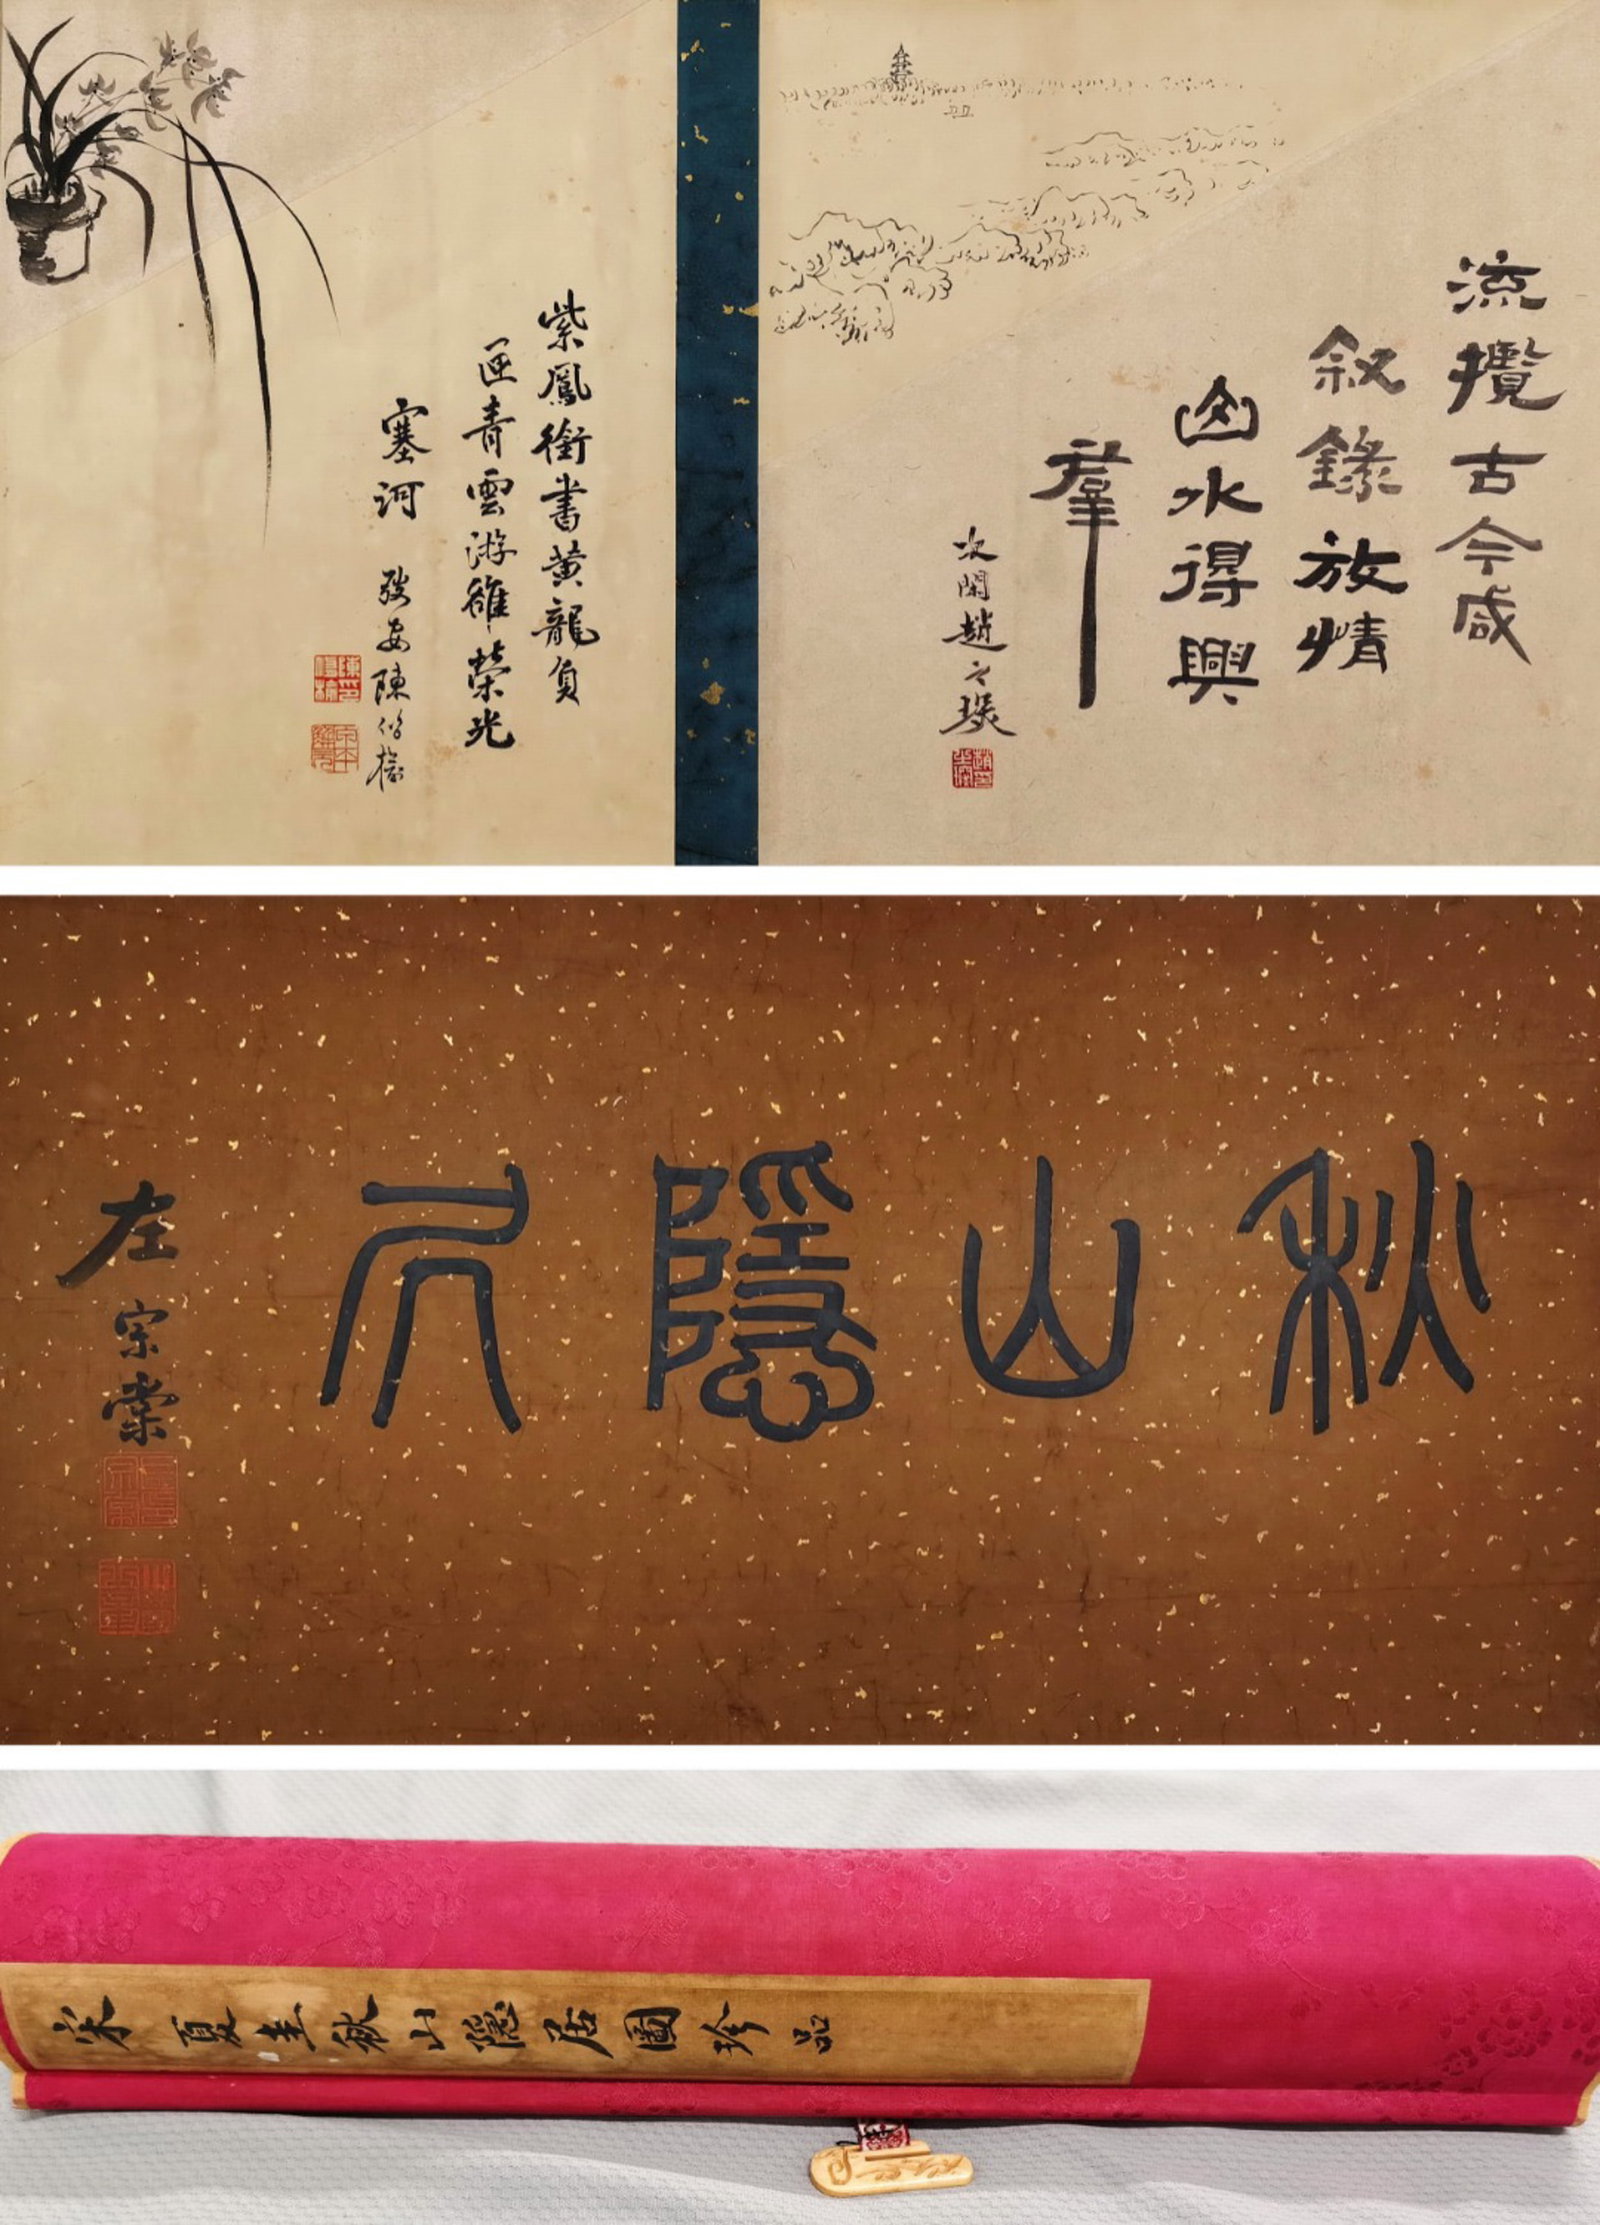 流攬古今咸
叙錄放情
山水得興
羣
次閑趙之琛
紫鳳銜書黃龍負
匣青雲游雒榮光
塞河
陳脩榆
秋山隱凥
左宗棠
宋夏圭秋山隱居圖珍品